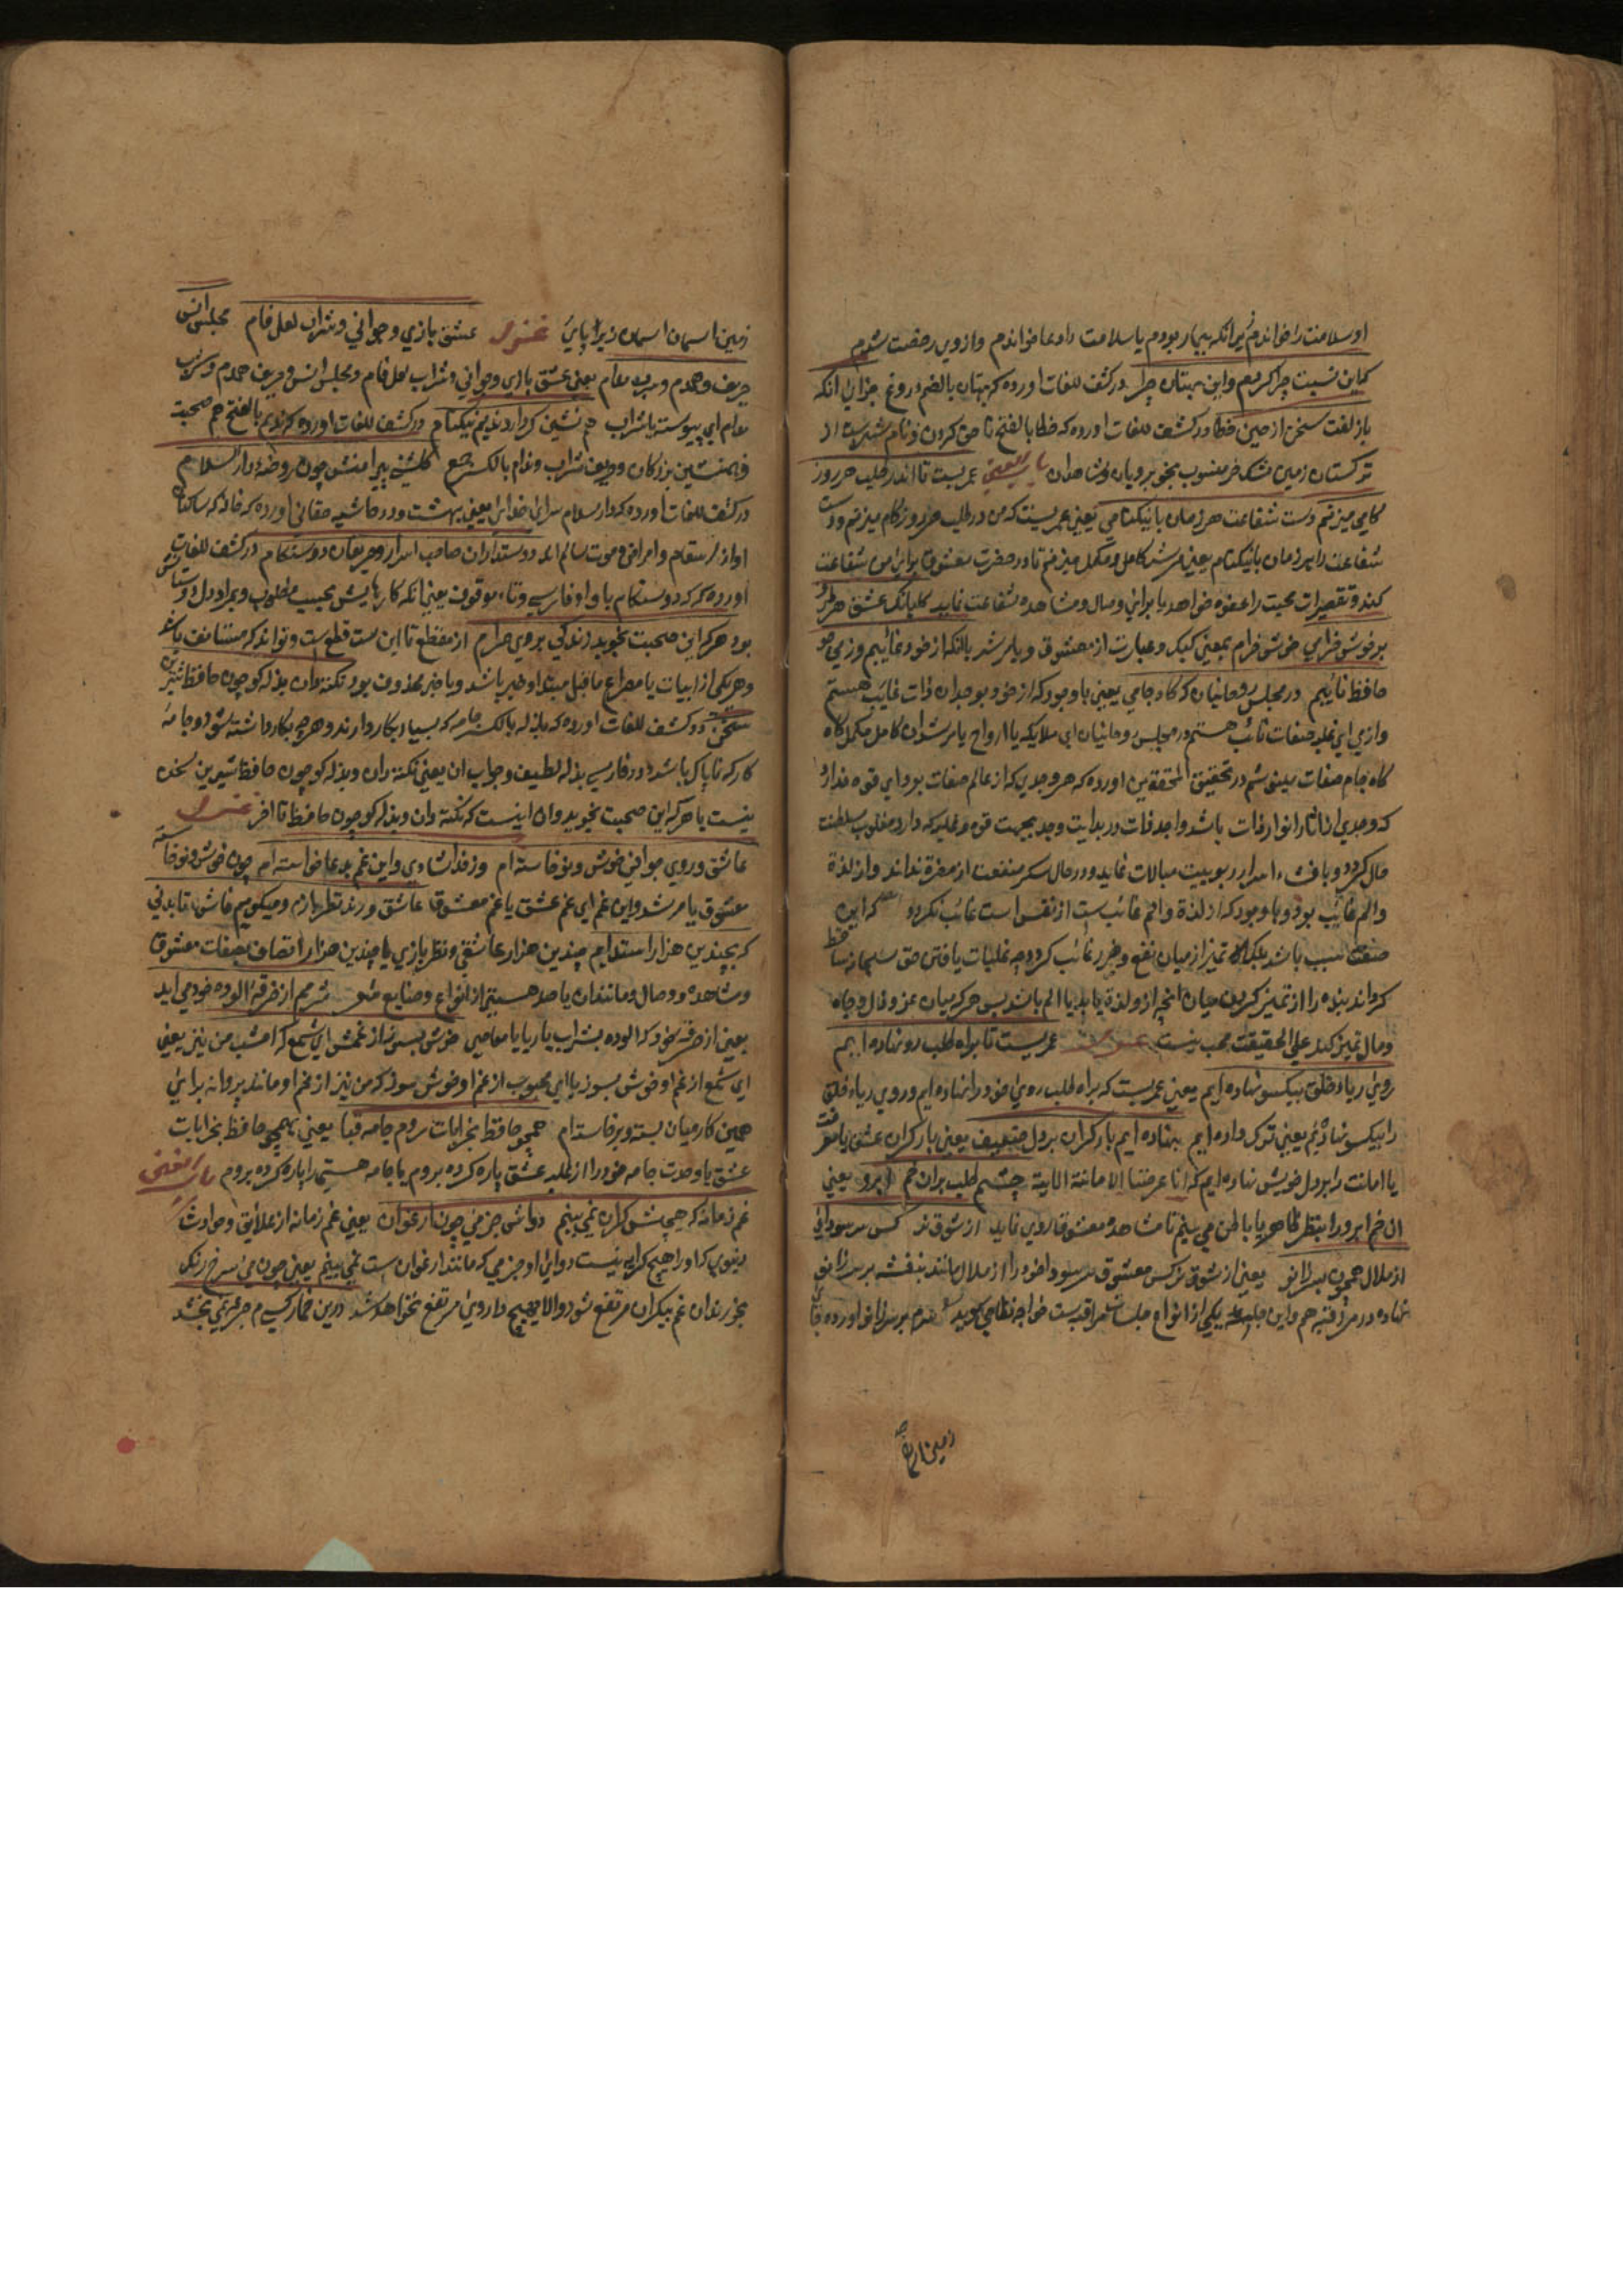 او سلامت را خواندم زیرانکه بیمار بودم یا سلامت را دعا خواندم وازوی رخصت شدم
کماین نسبت چرا کردیم واین بهتان چرا درکشف للغات اورده که بهتان بالضم دروغ
باز لفت سخن از چین خطا درکشف للغات اورده که خطا بالفتح نا حق کردن ونام شهریست از
ترکستان زمین مشک خیز منسوب بخوبرویان وشاهدان عمریست تا اندر طلب هر روز
کامی میزنم دست شفاعت هر زمان با نیکنامی یعنی عمریست که من در طلب هر روز کام میزنم ودست
شفاعت را هر زمان با نیکنام یعنی مرشد کامل ومکمل میزنم تا در حضرت معشوق برای من شفاعت
کند وتقصیرات محبت را عفو خواهد یا برای وصال ومشاهده شفاعت نماید کلبانک عشق هر طرف
بر خوش خرامی خوش خرام بمعنی کبک وعبارت از معشوق ویا مرشد بالنکه از خود غائبم وزمی چو
حافظ تائبم در مجلس روحانیان که گاه جامی یعنی باوجودکه از خود بوجدان ذات غایب هستم
وازمی ای غلبه صفات تائب هستم در مجلس روحانیان ای ملایکه یا ارواح یا مرشدان کامل مکمل کاه
کاه جام صفات مینوشم در تحقیق المحققین اورده که هر وجدی که از عالم صفات بود ای قوه ندارد
که وجدی از اثار انوار ذات باشد واجد ذات در بدایت وجد بجهت قوه وغلبه که دارد مغلوب سلطنت
حال کردد وبافشاء اسرار ربوبیت مبالات نماید ودر حال سکر منفعت از مضرة نداند واز لذة
والم غایب بود وباوجود که از لذة والم غائب است از نفس است غائب نکردد که این
صفت سبب باشد بلکه از تمیز از میان نفع وضرر غائب کردد چه غلبات یافتن حق سبحانه ساقط
کرداند بنده را از تمیز کردن میان انچه ازو لذة یابد یا الم یابد پس هر که میان عز وذل وجاه
ومال تمیز کند علی الحقیقت محب نیست عمریست تا براه طلب رو نهاده ایم
روی ریاء خلق بیکسو نهاده ایم یعنی عمریست که براه طلب روی خود را نهاده ایم وروی ریاء خلق
را بیکسو نهاده ایم یعنی ترک داده ایم بنهاده ایم بار کران بردل ضعیف یعنی بار کران عشق یا معرفت
یا امانت را بردل خویش نهاده ایم که انا عرضنا الامانة الایة چشم طلب بران خم ابرو یعنی
ان خم ابرو را بنظر ظاهر یا باطن می بینم تا مشاهده معشوق روی نماید از شوق نرکس سر سودایی
از ملال همچون بنفشه بر سر زانو یعنی از شوق نرکس معشوق سر سودا خود را از ملال مانند بنفشه بر سر زانو
نهاده در مراقبه هم واین جلسه یکی از انواع جلسات مراقبه است خواجه نظامی کوید سرم بر سر زانو اورده جا
زمین
زمین اسمان اسمان زیر پای غزل عشق بازی وجوانی وشراب لعل فام مجلس انس
حریف همدم وشرب مدام یعنی عشق بازی وجوانی وشراب لعل فام ومجلس انس وحریف همدم وشرب
مدام ای پیوسته یا شراب هم نشین کردار وندیم نیکنام درکشف للغات اورده که ندیم بالفتح هم صحبت
وهمنشین بزرکان وحریف شراب وندام بالکسر جمع کلشن پیرامنش چون روضهٔ دار السلام
درکشف للغات اورده که دار السلام سرای خدای یعنی بهشت ودر حاشیه حقانی اورده که خانه که ساکنان
او از اسقام وامراض وموت سالم اند دوستداران صاحب اسرار وحریفان دوستکام درکشف للغات
اورده که دوستکام با واو فارسی وتاء موقوف یعنی انکه کارهایش بحسب مطلوب وبمراد دل دوستانش
بود هر که این صحبت نجوید زندکی بروی حرام از مقطع تا این بیت قطع است وتواند که مستانف باشد
وهر یکی از ابیات یا مصراع ماقبل مبتدا و خبر باشد ویا خبر محذوف بود نکته دان بذله کو چون حافظ شیرین
سخن درکشف للغات اورده که بذله بالکسر جامه که بسیار بکار دارند وهر چه بکار داشته شود وجامهٔ
کار که ناپاک باشد ودر فارسی بذله لطیف وجواب ان یعنی نکته دان وبذله کو چون حافظ شیرین سخن
نیست یا هر که این صحبت نجوید وان اینست که نکته دان وبذله کو چون حافظ تا اخر غزل
عاشق روی جوانی خوش ونو خاسته ام وز خدا شادی واین غم بدعا خواسته ام چون خوش ونوخاسته
معشوق یا مرشد واین غم ای غم عشق یا غم معشوق عاشق ورند ونظر بازم ومیکویم فاش تا بدانی
که بچندین هنر اراسته ام چندین هزار عاشقی ونظر بازی یا چندین هزار اتصاف بصفات معشوق
ومشاهده ووصال ومانندان یا صد هستی از انواع وصنایع شرمم از خرقهٔ الوده خود می اید
یعنی از خرقه خود که الوده بشراب یا ریا یا معاصی خوش بسوز از غمش ای شمع که امشب من نیز یعنی
ای شمع از غم او خوش بسوز یا ای محبوب از غم او خوش سوز که من نیز از غم او مانند پروانه برای
همین کار میان بسته وبرخاسته ام همچو حافظ بخرابات روم جامه قبا یعنی همچو حافظ بخرابات
عشق یا وحدت جامه خود را از غلبه عشق پاره کرده بروم یا جامه هستی را پاره کرده بروم
غم زمانه که هیچش کران نمی بینم دواش جز می چون ارغوان یعنی غم زمانه از علائق وحوادث
دنیوی که او را هیچ کرانه نیست دوای او جز می که مانند ارغوان است نمی بینم یعنی چون می سرخ رنک
بخورند ان غم بیکران مرتفع شود والا هیچ داروی مرتفع نخواهد شد درین خمار کسم جرعه نمی بخشد